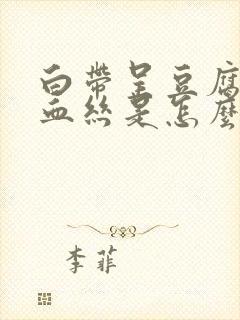 白帶呈豆腐
血絲是怎麼
李菲